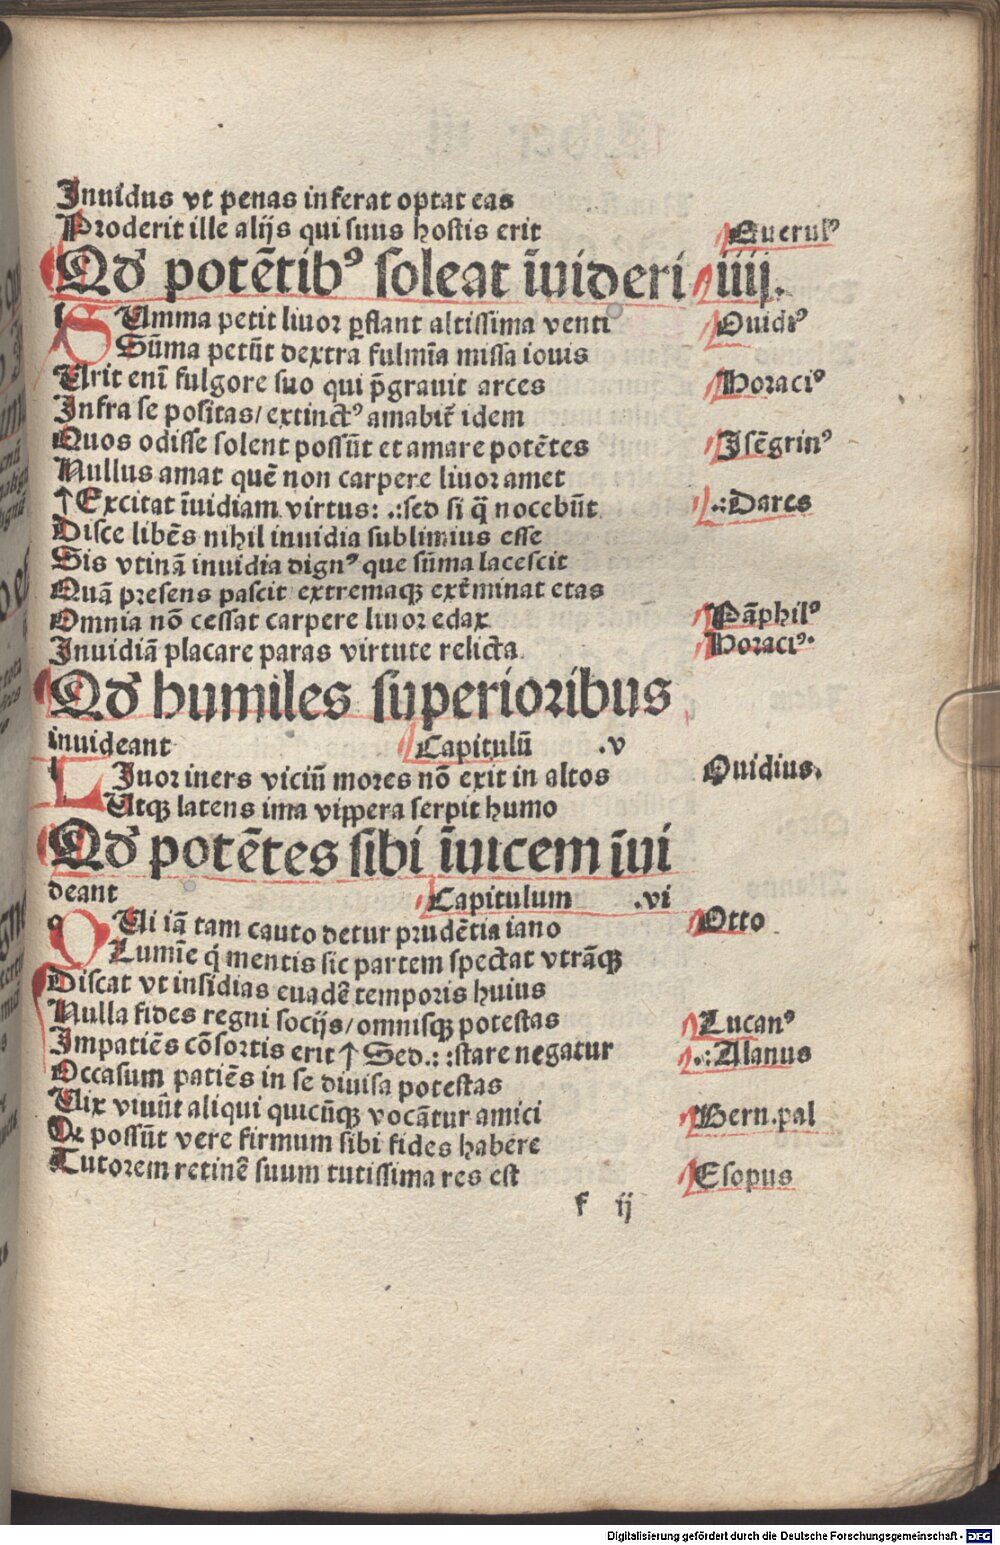 Inuidus vt penas inferat optat eas
Proderit ille alijs qui suus hostis erit Querulꝰ
Qđ potētibꝰ soleat īuideri iiij.
SUmma petit liuor ꝑflant altissima venti Ouidiꝰ
Sūma petūt dextra fulmīa missa iouis
Urit enī fulgore suo qui p̄grauit arces Horaciꝰ
Infra se positas/extinctꝰ amabit̄ idem
Quos odisse solent possūt et amare potētes Isēgrinꝰ
Nullus amat quē non carpere liuor amet
↑Excitat īuidiam virtus: .:sed si q̄ nocebūt .:Dares
Disce libēs nihil inuidia sublimius esse
Sis vtinā inuidia dignꝰ que sūma lacescit
Quā presens pascit extremaqꝫ ext̄minat etas
Omnia nō cessat carpere liuor edax Pāphilꝰ
Inuidiā placare paras virtute relicta Horaciꝰ.
Qđ humiles superioribus
inuideant Capitulū .v
LIuor iners viciū mores nō exit in altos Ouidius.
Utqꝫ latens ima vippera serpit humo
Qđ potētes sibi īuicem īui
deant Capitulum .vi
QUi iā tam cauto detur prudētia iano Otto
Lumīe q̇ mentis sic partem spectat vtrāqꝫ
Discat vt insidias euadē temporis huius
Nulla fides regni socijs/omnisqꝫ potestas Lucanꝰ
Impatiēs cōsortis erit↑Sed.: :stare negatur .:Alanus
Occasum patiēs in se diuisa potestas
Uix viuūt aliqui quicūqꝫ vocātur amici Bern.pal
Qe possūt vere firmum sibi fides habere
Tutorem retinē suum tutissima res est Esopus
f ij
Digitalisierung gefördert durch die Deutsche Forschungsgemeinschaft - DFG